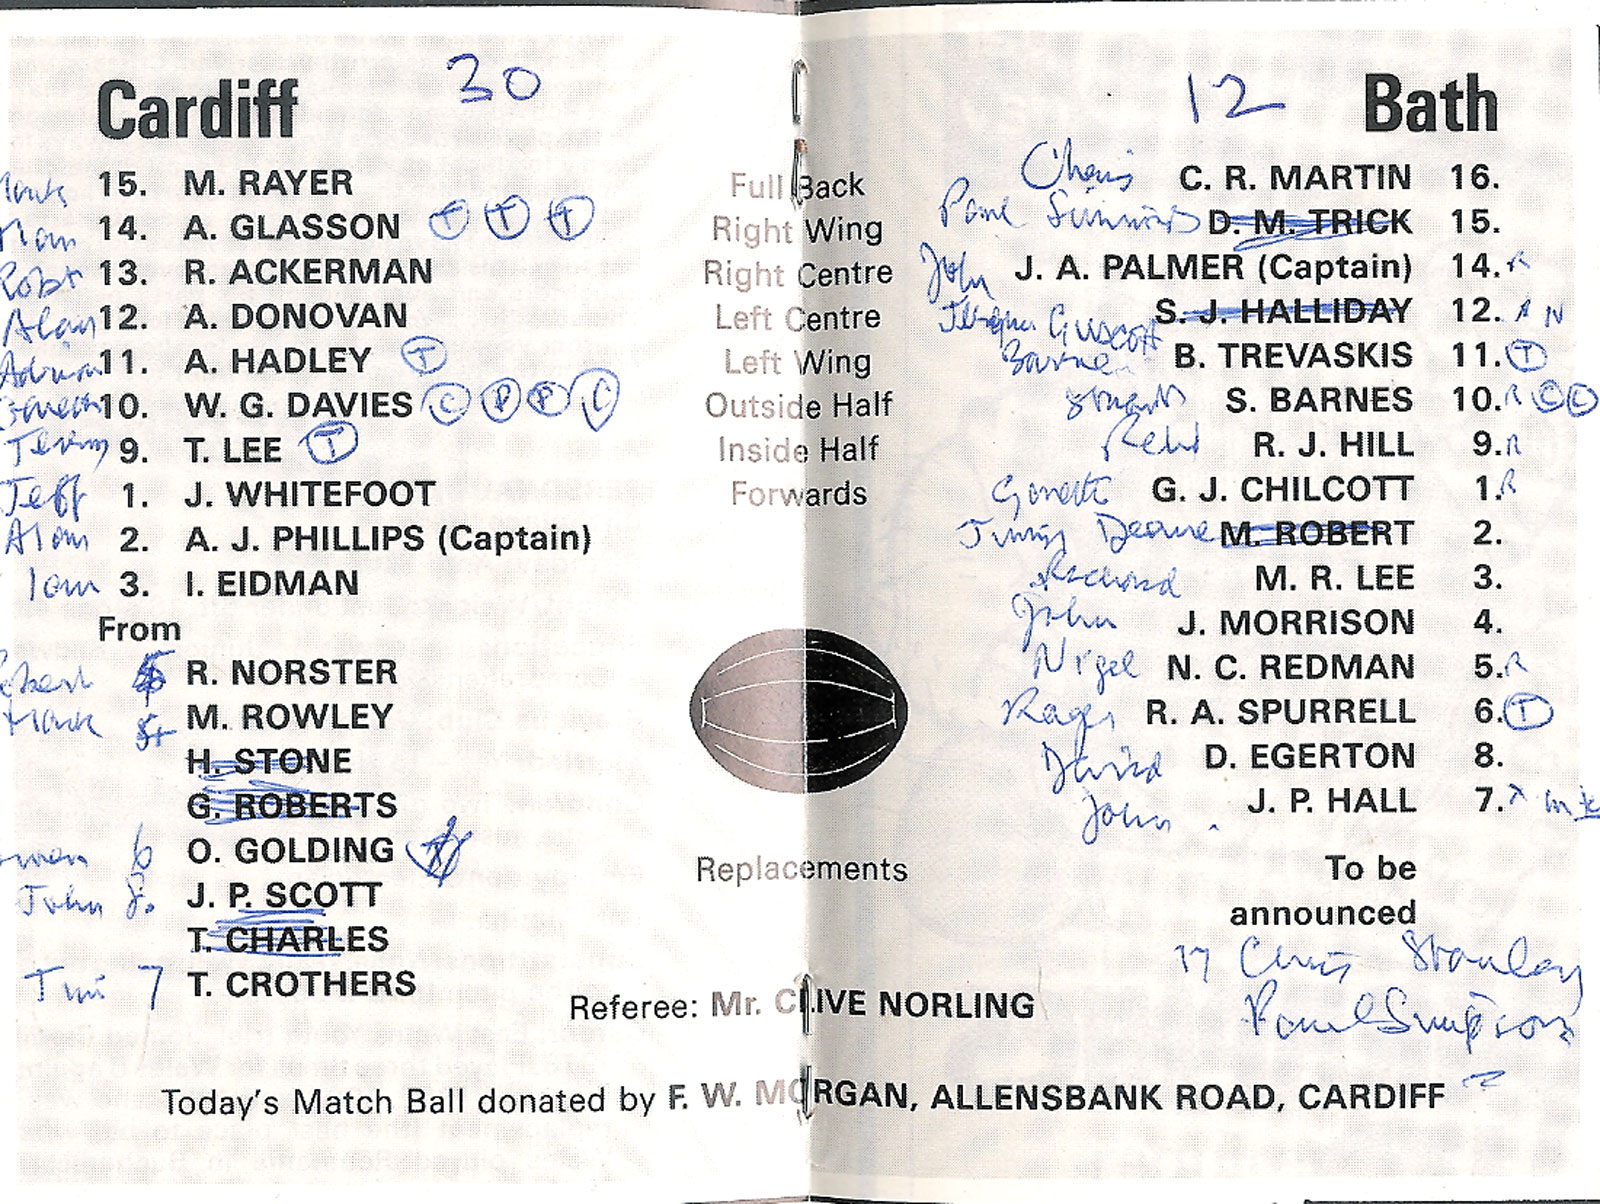 Cardiff 30
Mark 15. M. RAYER
Alan 14. A. GLASSON T T T
Robt 13. R. ACKERMAN
Alan 12. A. DONOVAN
Adrian 11. A. HADLEY T
Gareth 10. W. G. DAVIES C P P C
Terry 9. T. LEE T
Jeff 1. J. WHITEFOOT
Alan 2. A. J. PHILLIPS (Captain)
Ian 3. I. EIDMAN
From
R. NORSTER
M. ROWLEY
H. STONE
G. ROBERTS
6 O. GOLDING
John 8. J. P. SCOTT
T. CHARLES
Tim 7 T. CROTHERS
Full Back
Right Wing
Right Centre
Left Centre
Left Wing
Outside Half
Inside Half
Forwards
Replacements
12 Bath
Chris C. R. MARTIN 16.
Paul Simmons D. M. TRICK 15.
John J. A. PALMER (Captain) 14. R
Jeremy Guscott S. J. HALLIDAY 12.
Barrie B. TREVASKIS 11. T
Stuart S. BARNES 10. R C C
R. J. HILL 9. R
Gareth G. J. CHILCOTT 1. R
Jimmy Deane M. ROBERT 2.
Richard M. R. LEE 3.
John J. MORRISON 4.
Nigel N. C. REDMAN 5. R
Roger R. A. SPURRELL 6. T
David D. EGERTON 8.
John J. P. HALL 7.
To be
announced
17 Chris Stanley
Paul Simpson
Referee: Mr. CLIVE NORLING
Today's Match Ball donated by F. W. MORGAN, ALLENSBANK ROAD, CARDIFF